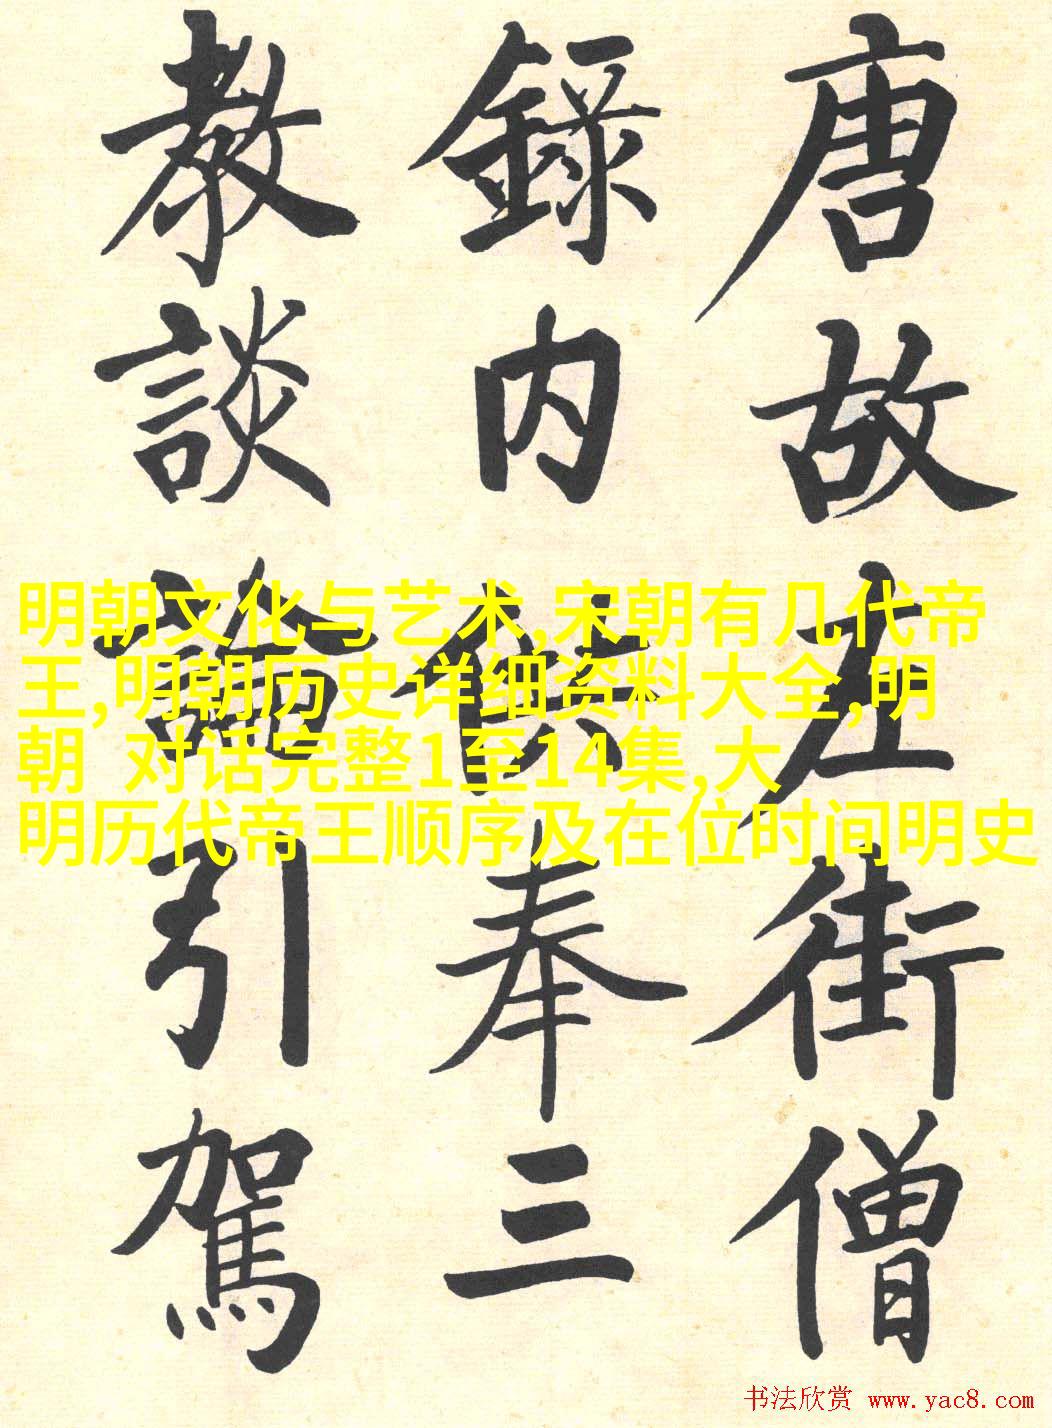 唐故左街僧
錄内供奉三
教談論引駕
明朝文化与艺术,宋朝有几代帝
王,明朝历史详细资料大全,明
朝 对话完整1至14集,大
明历代帝王顺序及在位时间明史
书法欣赏 www.yac8.com